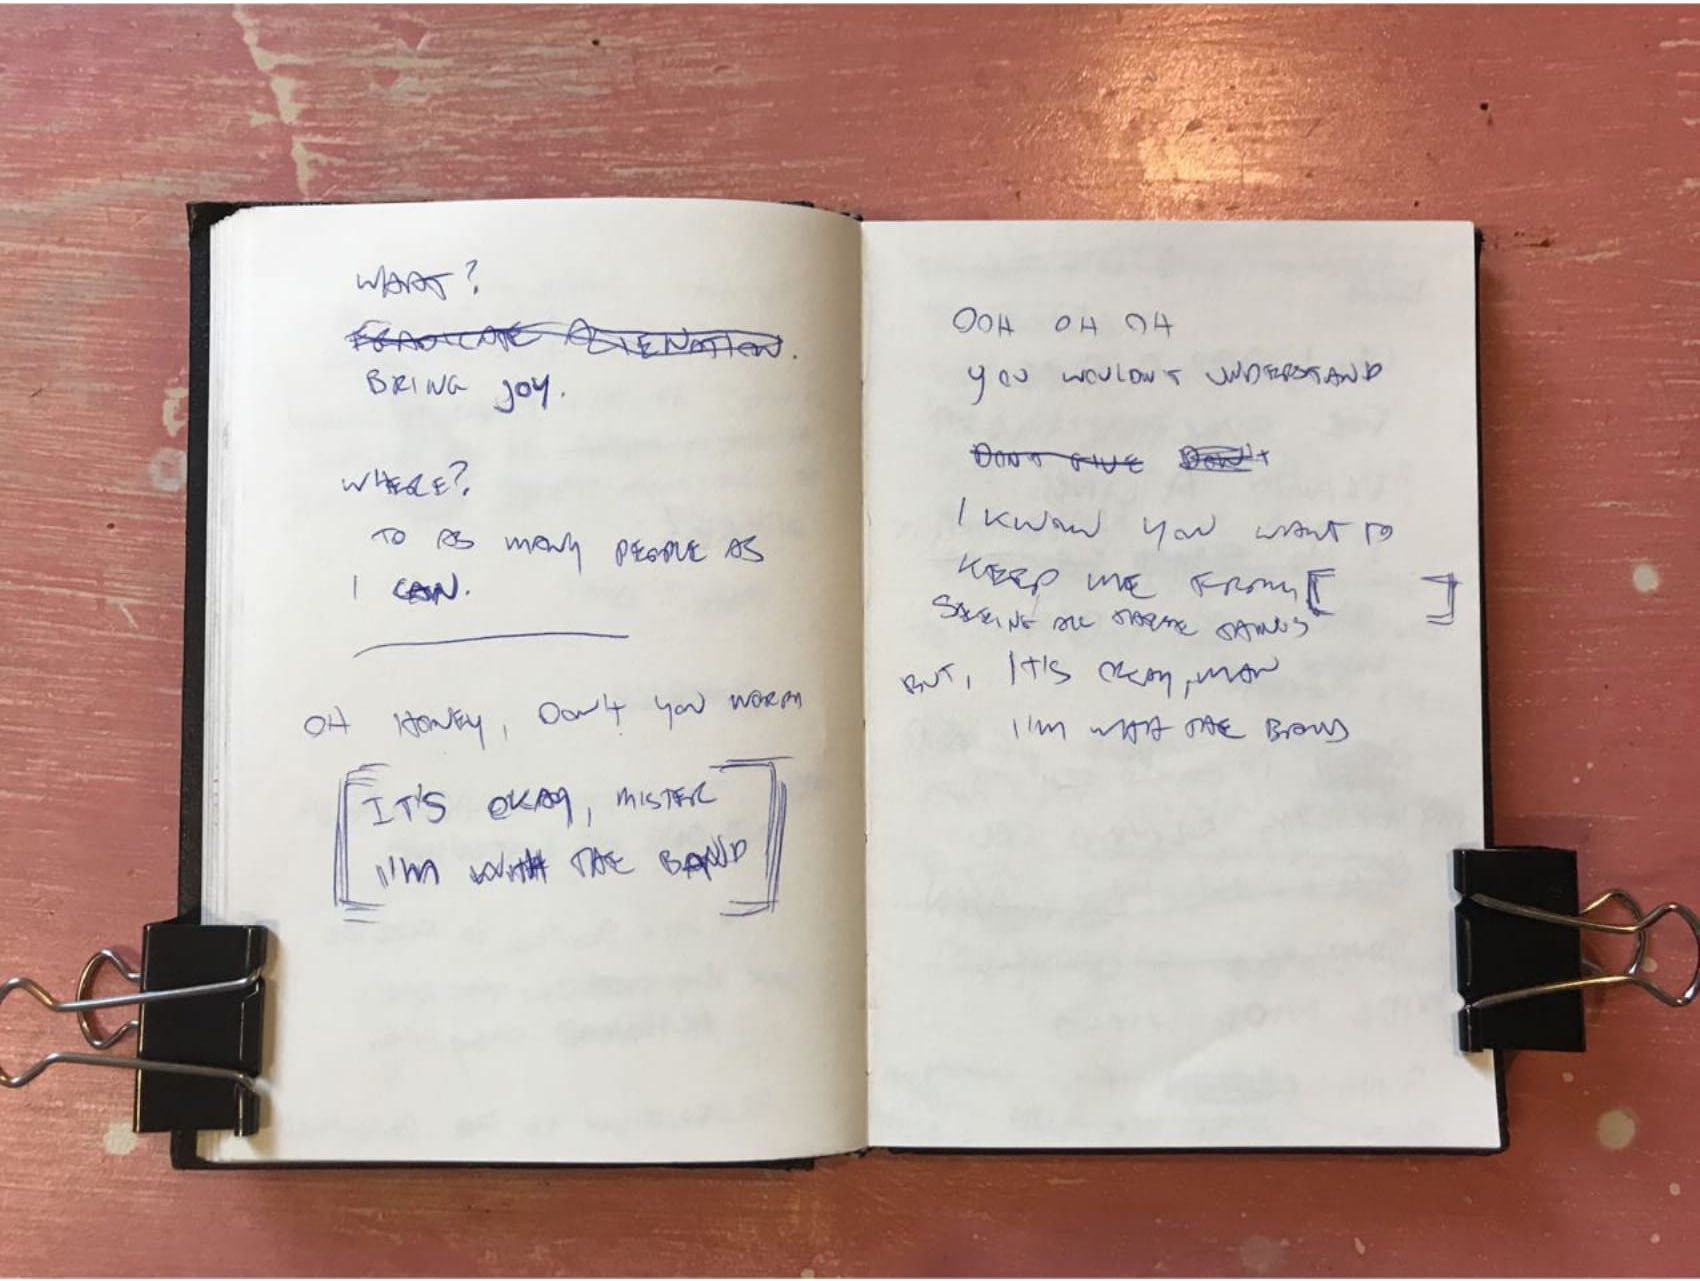 WHAT?
ERADICATE ALIENATION.
BRING JOY.
WHERE?
TO AS MANY PEOPLE AS
I CAN.
OH HONEY, DON'T YOU WORRY
[IT'S OKAY, MISTER
I'M WITH THE BAND]
OOH OH OH
YOU WOULDN'T UNDERSTAND
DON'T GIVE DON'T
I KNOW YOU WANT TO
KEEP ME FROM [ ]
SEEING ALL THESE THINGS
BUT, IT'S OKAY, MAN
I'M WITH THE BAND